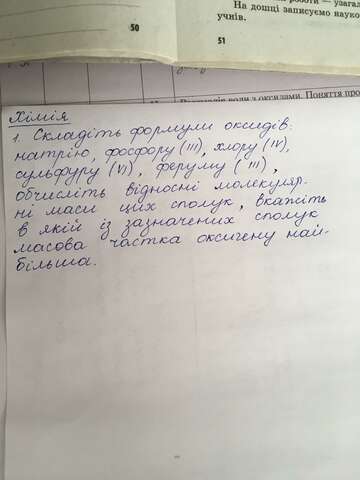 роботи — узагал
На дошці записуємо науко
учнів.
50
51
Хімія
1. Складіть формули оксидів:
натрію, фосфору (III), хлору (IV),
сульфуру (VI), феруму (III),
обчисліть відносні молекуляр-
ні маси цих сполук, вкажіть
в якій із зазначених сполук
масова частка оксигену най-
більша.